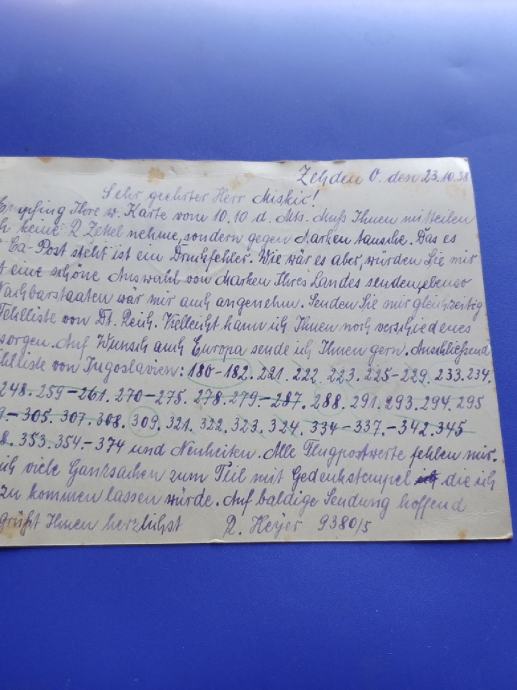 Zehden O. den 23.10.38
Sehr geehrter Herr Miskić!
Empfing Ihre w. Karte vom 10.10 d. Mts. Muß Ihnen mitteilen
ch keine R Zettel nehme, sondern gegen Marken tausche. Das es
Ea-Post steht ist ein Druckfehler. Wie wär es aber, würden Sie mir
t eine schöne Auswahl von Marken Ihres Landes senden, ebenso
Nachbarstaaten wär mir auch angenehm. Senden Sie mir gleichzeitig
Fehlliste von Dt. Reich. Vielleicht kann ich Ihnen noch verschiedenes
sorgen. Auf Wunsch auch Europa sende ich Ihnen gern. Anschließend
hlliste von Jugoslavien: 180-182. 221. 222. 223. 225-229. 233. 234.
248. 259-261. 270-275. 278. 279-287. 288. 291. 293. 294. 295
-305. 307. 308. 309. 321. 322. 323. 324. 334-337.-342. 345
8. 353. 354.-374 und Neuheiten. Alle Flugpostwerte fehlen mir.
ich viele Ganzsachen zum Teil mit Gedenkstempel die ich
zu kommen lassen würde. Auf baldige Sendung hoffend
grüßt Ihnen herzlichst R. Heyer 9380/5